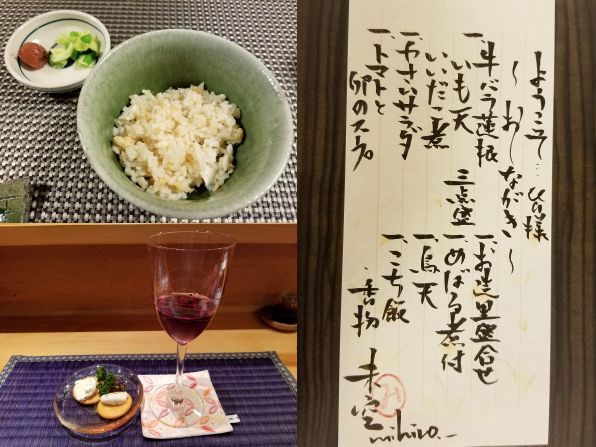 ようこそ…
様
～おしながき～
一、牛バラ蓮根
いも天
いいだこ煮
三点盛
一、やさいサラダ
一、トマトと
卵のスープ
一、お造里盛合せ
一、めばる煮付
一、鳥天
一、こち飯
・香物
未空
mihiro.